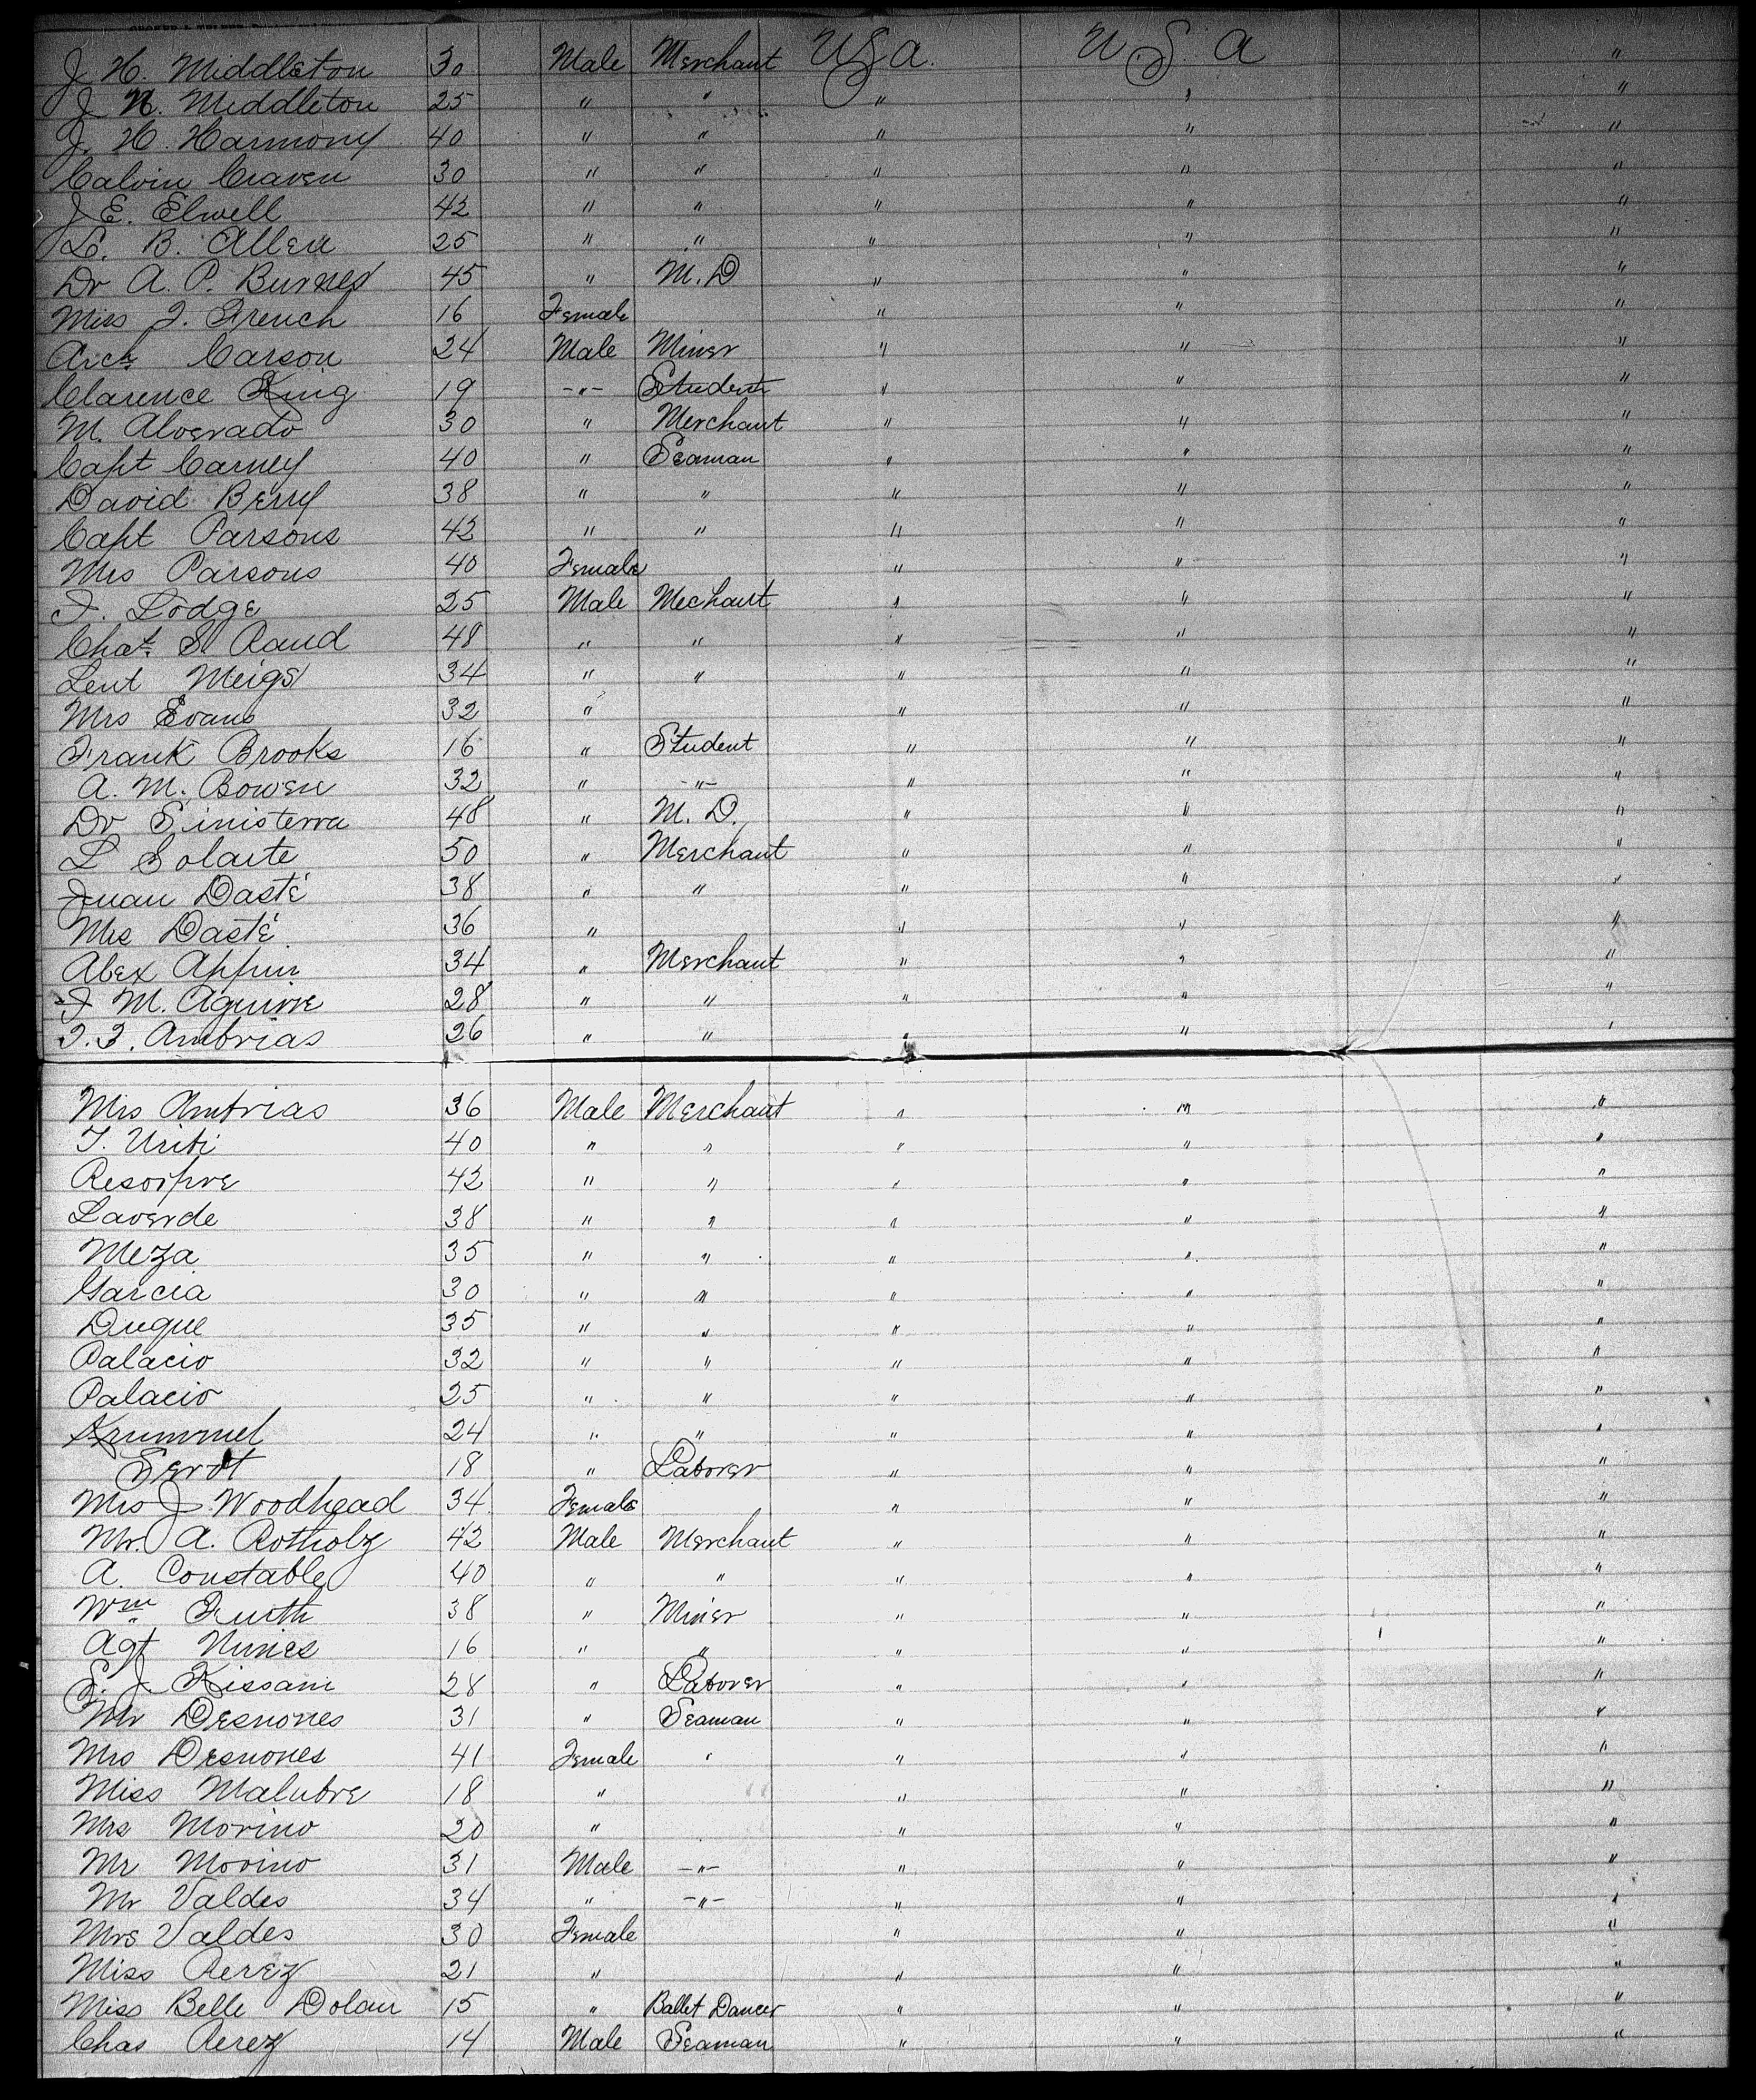 J. H. Middleton 30 Male Merchant U.S.A. U.S.A "
J. N. Middleton 25 " " " " "
J. H. Harmony 40 " " " " "
Calvin Craven 30 " " " " "
J. E. Elwell 42 " " " " "
L. B. Allen 25 " " " " "
Dr A. P. Burnes 45 " M.D " " "
Miss J. French 16 Female " " "
Arch Carson 24 Male Miner " " "
Clarence King 19 -"- Student " " "
M. Alverado 30 " Merchant " " "
Capt Carney 40 " Seaman " " "
David Berry 38 " " " " "
Capt Parsons 42 " " " " "
Mrs Parsons 40 Female " " "
J. Lodge 25 Male Mechant " " "
Chas. S Rand 48 " " " " "
Leut Meigs 34 " " " " "
Mrs Evans 32 " " " "
Frank Brooks 16 " Student " " "
A. M. Bowen 32 " -"- " " "
Dr Sinisterra 48 " M. D. " " "
L Solarte 50 " Merchant " " "
Juan Dasté 38 " " " " "
Mrs Dasté 36 " " " "
Alex Appun 34 " Merchant " " "
J M. Aguirre 28 " " " " "
J. J. Ambrias 26 " " " " "
Mrs Ambrias 36 Male Merchant " " "
T. Uribi 40 " " " " "
Resoipre 42 " " " " "
Laverde 38 " " " " "
Meza 35 " " " " "
Garcia 30 " " " " "
Duque 35 " " " " "
Palacio 32 " " " " "
Palacio 25 " " " " "
Krummel 24 " " " " "
Servt 18 " Laborer " " "
Mrs J. Woodhead 34 Female " " "
Mr. A. Rotholz 42 Male Merchant " " "
A. Constable 40 " " " " "
Wm Fruth 38 " Miner " " "
Agt Nunes 16 " " " " "
S. J. Kissam 28 " Laborer " " "
Mr Desnones 31 " Seaman " " "
Mrs Desnones 41 Female " " " "
Miss Malubre 18 " " " "
Mrs Morino 20 " " " "
Mr Morino 31 Male -"- " " "
Mr Valdes 34 " -"- " " "
Mrs Valdes 30 Female " " "
Miss Perez 21 " " " "
Miss Belle Dolan 15 " Ballet Dancer " " "
Chas Perez 14 Male Seaman " " "